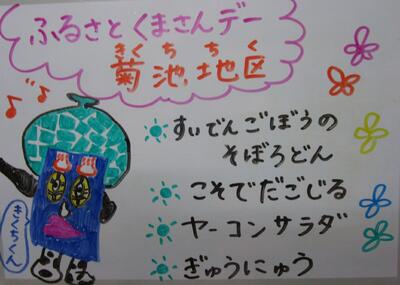 ふるさとくまさんデー
きくちちく
菊池地区
すいでんごぼうの
そぼろどん
こそでだごじる
ヤーコンサラダ
ぎゅうにゅう